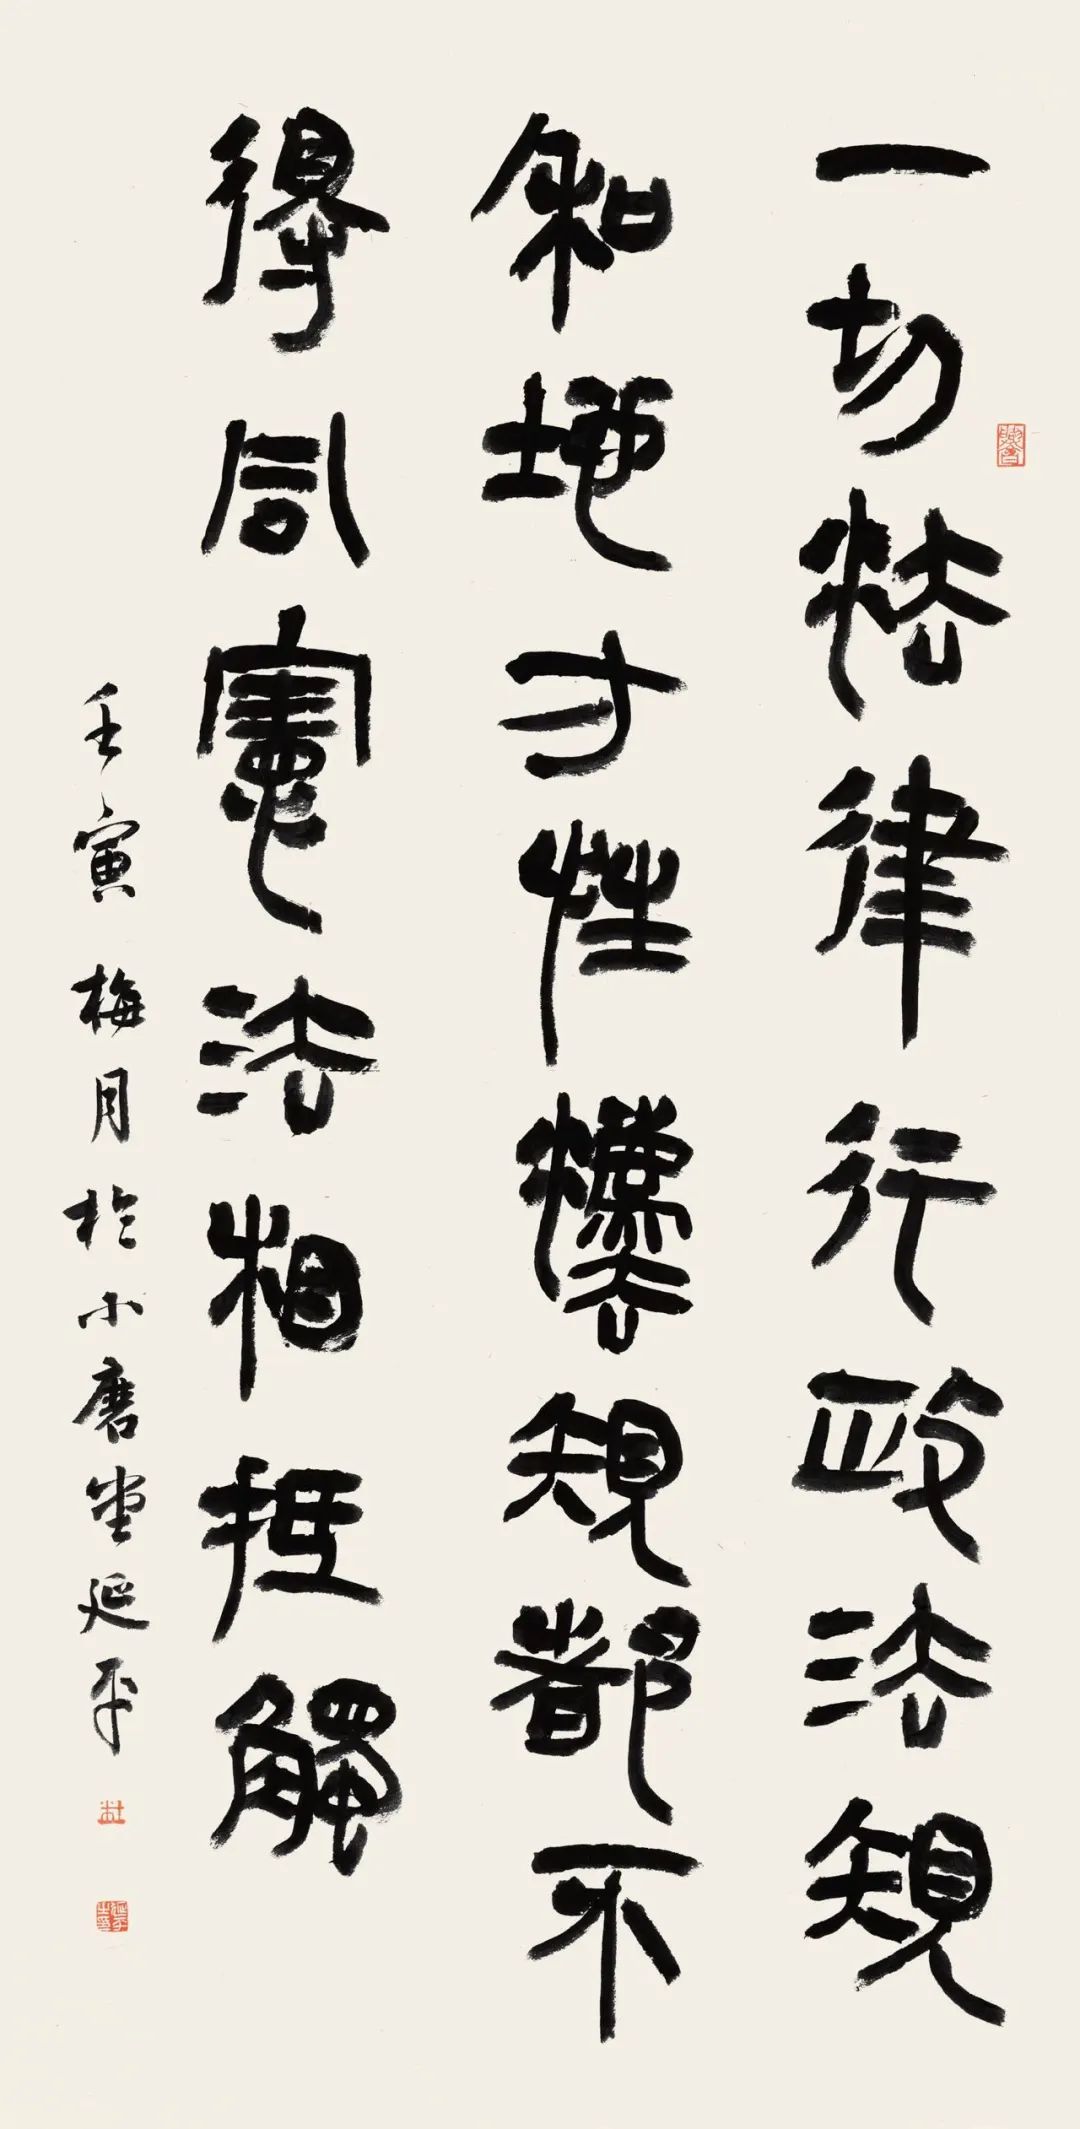 一切法律行政法規
和地方性灋規都不
得同憲法相抵觸
壬寅梅月於小磨堂延平
杜
延平之印